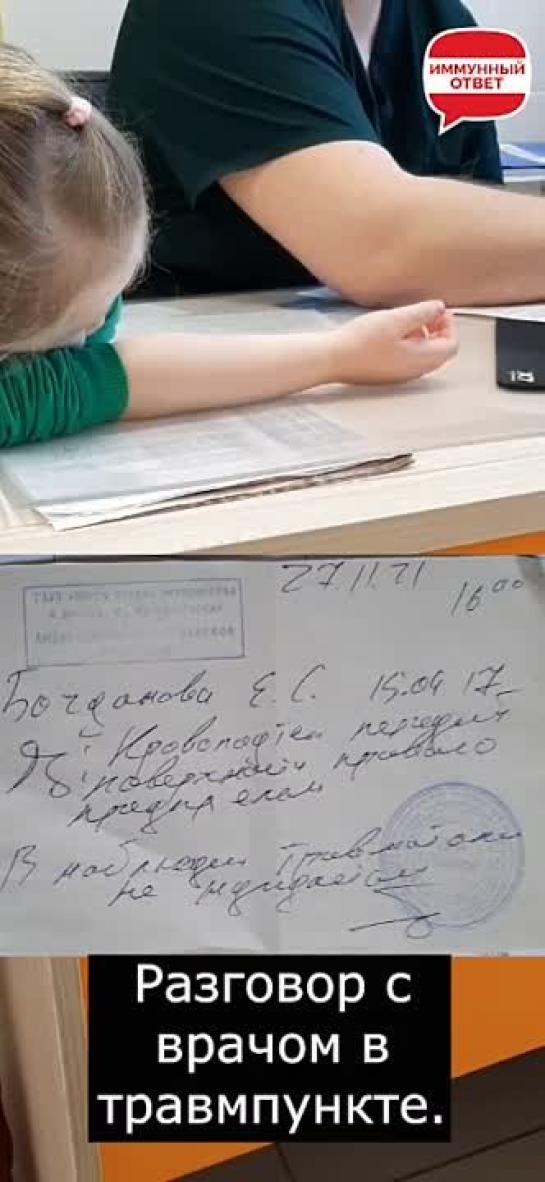 ИММУННЫЙ
ОТВЕТ
27.11.21
16⁰⁰
Богданова Е. С. 15.04 17
Кровоподтек передней
поверхности правого
предплечья
В наблюдении травматолога
не нуждается
Разговор с
врачом в
травмпункте.